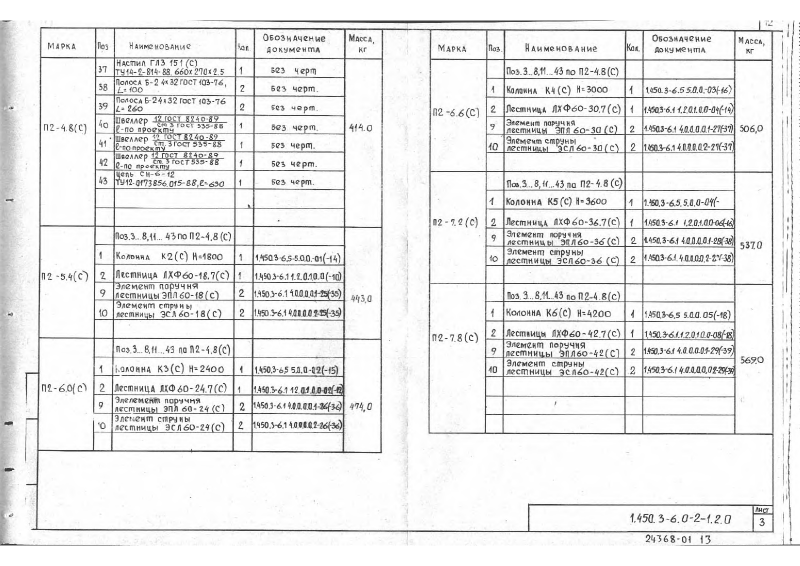 МАРКА ПОЗ НАИМЕНОВАНИЕ КОЛ. ОБОЗНАЧЕНИЕ ДОКУМЕНТА МАССА, КГ
П2-4.8(С) 414.0
37 НАСТИЛ ГЛЗ 151 (С) ТУ14-2-814-88, 660×270×2.5 1 БЕЗ ЧЕРТ
38 ПОЛОСА Б-2 4×32 ГОСТ 103-76, L=100 2 БЕЗ ЧЕРТ.
39 ПОЛОСА Б-2 4×32 ГОСТ 103-76 L=260 2 БЕЗ ЧЕРТ.
40 ШВЕЛЛЕР 12 ГОСТ 8240-89 СТ.3 ГОСТ 535-88 ℓ-ПО ПРОЕКТУ 1 БЕЗ ЧЕРТ.
41 ШВЕЛЛЕР 12 ГОСТ 8240-89 СТ.3 ГОСТ 535-88 ℓ-ПО ПРОЕКТУ 1 БЕЗ ЧЕРТ.
42 ШВЕЛЛЕР 12 ГОСТ 8240-89 СТ.3 ГОСТ 535-88 ℓ-ПО ПРОЕКТУ 1 БЕЗ ЧЕРТ.
43 ЦЕПЬ СН-6-12 ТУ12-0173856.015-88, ℓ=650 1 БЕЗ ЧЕРТ.
П2-5.4(С) 443,0
ПОЗ.3...8,11...43 ПО П2-4,8(С)
1 КОЛОННА К2(С) Н=1800 1 1.450.3-6.5-5.0.0.-01(-14)
2 ЛЕСТНИЦА ЛХФ60-18,7(С) 1 1.450.3-6.1 1.2.0.1.0.0(-10)
9 ЭЛЕМЕНТ ПОРУЧНЯ ЛЕСТНИЦЫ ЭПЛ 60-18(С) 2 1.450.3-6.1 4.0.0.0.0.1-25(-35)
10 ЭЛЕМЕНТ СТРУНЫ ЛЕСТНИЦЫ ЭСЛ60-18(С) 2 1.450.3-6.1 4.0.0.0.0.2-25(-35)
П2-6.0(С) 474,0
ПОЗ.3...8,11...43 ПО П2-4,8(С)
1 КОЛОННА К3(С) Н=2400 1 1.450.3-6.5 5.0.0-02(-15)
2 ЛЕСТНИЦА ЛХФ60-24,7(С) 1
9 ЭЛЕЕМЕНТ ПОРУЧНЯ ЛЕСТНИЦЫ ЭПЛ 60-24(С) 2 1.450.3-6.1 4.0.0.0.0.1-26(-36)
10 ЭЛЕМЕНТ СТРУНЫ ЛЕСТНИЦЫ ЭСЛ60-24(С) 2 1.450.3-6.1 4.0.0.0.0.2-26(-36)
МАРКА ПОЗ. НАИМЕНОВАНИЕ КОЛ. ОБОЗНАЧЕНИЕ ДОКУМЕНТА МАССА, КГ
П2-6.6(С) 506,0
ПОЗ.3...8,11...43 ПО П2-4.8(С)
1 КОЛОННА К4(С) Н=3000 1 1.450.3-6.5 5.0.0.-03(-16)
2 ЛЕСТНИЦА ЛХФ60-30,7(С) 1 1.450.3-6.1 1.2.0.1.0.0-04(-14)
9 ЭЛЕМЕНТ ПОРУЧНЯ ЛЕСТНИЦЫ ЭПЛ 60-30(С) 2 1.450.3-6.1 4.0.0.0.0.1-27(-37)
10 ЭЛЕМЕНТ СТРУНЫ ЛЕСТНИЦЫ ЭСЛ60-30(С) 2 1.450.3-6.1 4.0.0.0.0.2-27(-37)
П2-7.2(С) 537.0
ПОЗ.3...8,11...43 ПО П2-4.8(С)
1 КОЛОННА К5(С) Н=3600 1 1.450.3-6.5 5.0.0-04(-
2 ЛЕСТНИЦА ЛХФ60-36,7(С) 1 1.450.3-6.1 1.2.0.1.0.0-06(-16)
9 ЭЛЕМЕНТ ПОРУЧНЯ ЛЕСТНИЦЫ ЭПЛ60-36(С) 2 1.450.3-6.1 4.0.0.0.0.1-28(-38)
10 ЭЛЕМЕНТ СТРУНЫ ЛЕСТНИЦЫ ЭСЛ60-36(С) 2
П2-7.8(С) 569.0
ПОЗ.3...8,11...43 ПО П2-4.8(С)
1 КОЛОННА К6(С) Н=4200 1 1.450.3-6.5 5.0.0.05(-18)
2 ЛЕСТНИЦЫ ЛХФ60-42,7(С) 1 1.450.3-6.1 1.2.0.1.0.0-08(-18)
9 ЭЛЕМЕНТ ПОРУЧНЯ ЛЕСТНИЦЫ ЭПЛ60-42(С) 2 1.450.3-6.1 4.0.0.0.0.1-29(-39)
10 ЭЛЕМЕНТ СТРУНЫ ЛЕСТНИЦЫ ЭСЛ60-42(С) 2 1.450.3-6.1 4.0.0.0.0.2-29(-39)
1.450.3-6.0-2-1.2.0
ЛИСТ 3
24368-01 13